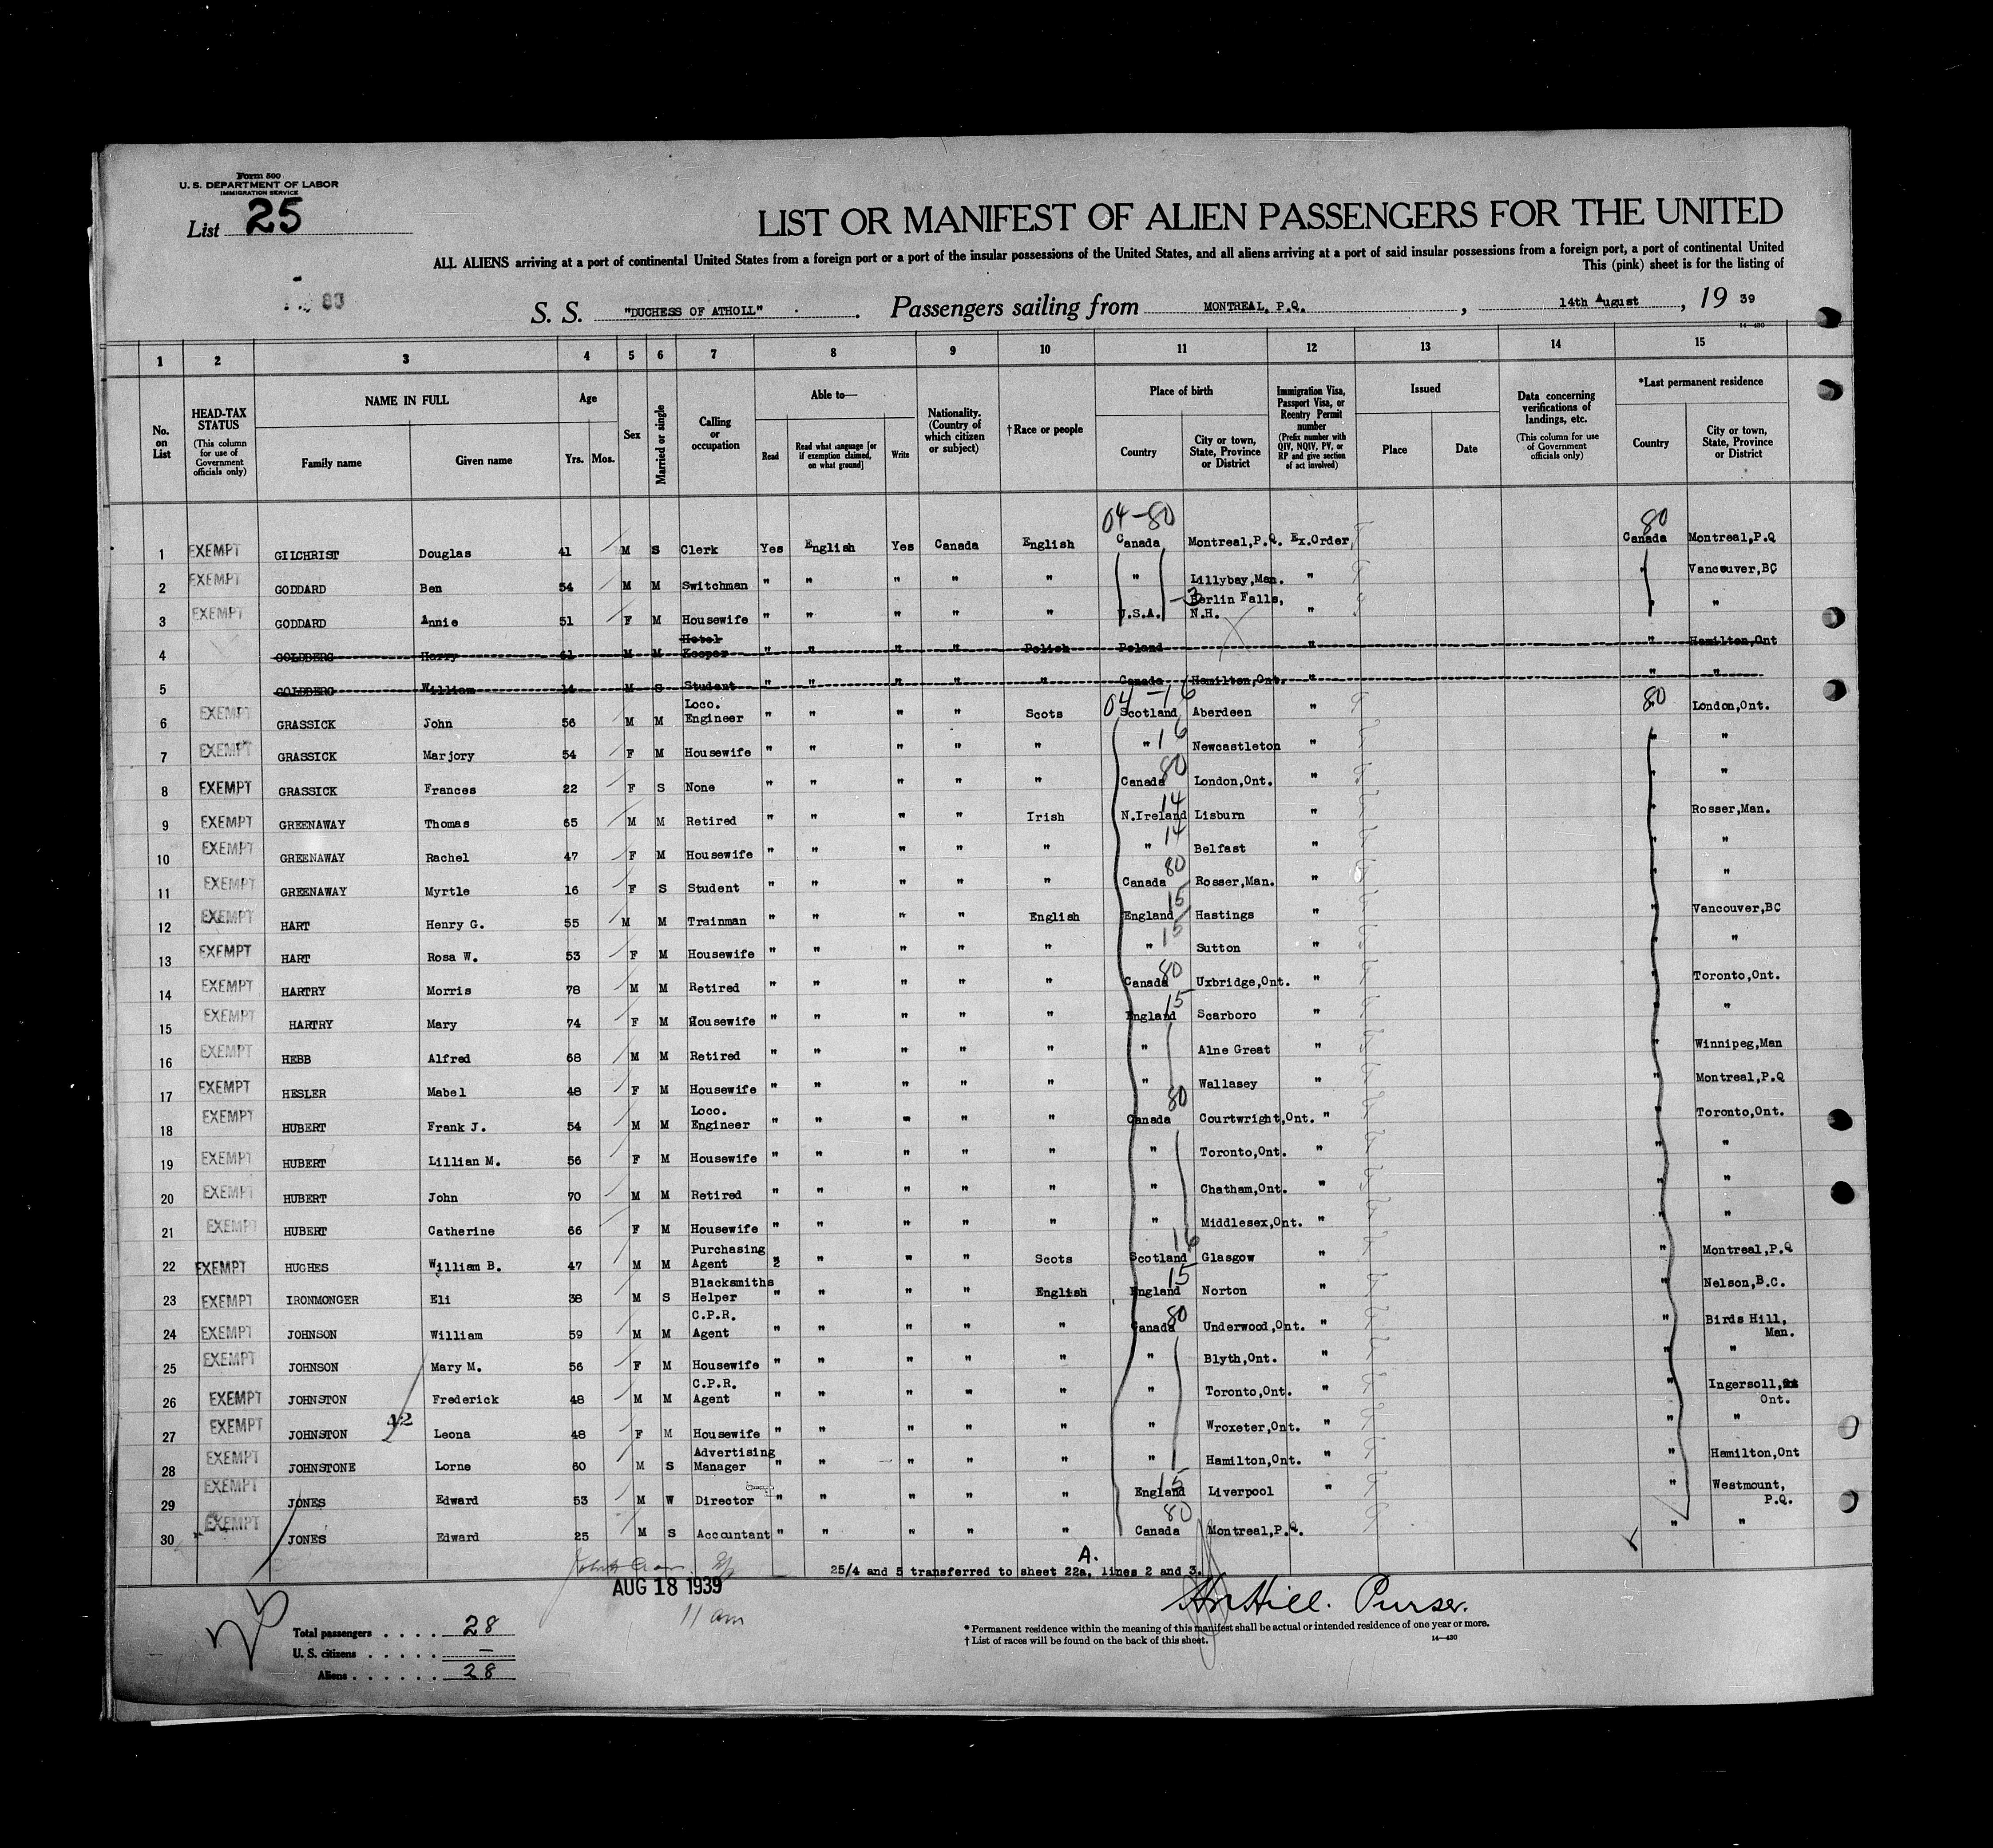 Form 500
U. S. DEPARTMENT OF LABOR
IMMIGRATION SERVICE
List 25
LIST OR MANIFEST OF ALIEN PASSENGERS FOR THE UNITED
ALL ALIENS arriving at a port of continental United States from a foreign port or a port of the insular possessions of the United States, and all aliens arriving at a port of said insular possessions from a foreign port, a port of continental United
This (pink) sheet is for the listing of
80
S. S. "DUCHESS OF ATHOLL" . Passengers sailing from MONTREAL, P.Q. , 14th August , 19 39
14—430
1 2 3 4 5 6 7 8 9 10 11 12 13 14 15
No. on List
HEAD-TAX STATUS (This column for use of Government officials only)
NAME IN FULL Family name Given name
Age Yrs. Mos.
Sex
Married or single
Calling or occupation
Able to— Read Read what language [or if exemption claimed, on what ground] Write
Nationality. (Country of which citizen or subject)
†Race or people
Place of birth Country City or town, State, Province or District
Immigration Visa, Passport Visa, or Reentry Permit number (Prefix number with QIV, NQIV, PV, or RP and give section of act involved)
Issued Place Date
Data concerning verifications of landings, etc. (This column for use of Government officials only)
*Last permanent residence Country City or town, State, Province or District
04-80 80
1 EXEMPT GILCHRIST Douglas 41 M S Clerk Yes English Yes Canada English Canada Montreal,P.Q. Ex.Order, Canada Montreal,P.Q
2 EXEMPT GODDARD Ben 54 M M Switchman " " " " " " Lillybay,Man. " " Vancouver,BC
3 EXEMPT GODDARD Annie 51 F M Housewife " " " " " U.S.A. -3 Berlin Falls, N.H. " " "
4 GOLDBERG Harry 41 M M Hotel Keeper " " " " Polish Poland " " Hamilton,Ont
5 GOLDBERG William 14 M S Student " " " " " Canada Hamilton,Ont. " " "
6 EXEMPT GRASSICK John 56 M M Loco. Engineer " " " " Scots 04-16 Scotland Aberdeen " 80 " London,Ont.
7 EXEMPT GRASSICK Marjory 54 F M Housewife " " " " " " 16 Newcastleton " " "
8 EXEMPT GRASSICK Frances 22 F S None " " " " " Canada 80 London,Ont. " " "
9 EXEMPT GREENAWAY Thomas 65 M M Retired " " " " Irish N.Ireland 14 Lisburn " " Rosser,Man.
10 EXEMPT GREENAWAY Rachel 47 F M Housewife " " " " " " 14 Belfast " " "
11 EXEMPT GREENAWAY Myrtle 16 F S Student " " " " " Canada 80 Rosser,Man. " " "
12 EXEMPT HART Henry G. 55 M M Trainman " " " " English England 15 Hastings " " Vancouver,BC
13 EXEMPT HART Rosa W. 53 F M Housewife " " " " " " 15 Sutton " " "
14 EXEMPT HARTRY Morris 78 M M Retired " " " " " Canada 80 Uxbridge,Ont. " " Toronto,Ont.
15 EXEMPT HARTRY Mary 74 F M Housewife " " " " " England 15 Scarboro " " "
16 EXEMPT HEBB Alfred 68 M M Retired " " " " " " Alne Great " " Winnipeg,Man
17 EXEMPT HESLER Mabel 48 F M Housewife " " " " " " Wallasey " " Montreal,P.Q
18 EXEMPT HUBERT Frank J. 54 M M Loco. Engineer " " " " " Canada 80 Courtwright,Ont. " " Toronto,Ont.
19 EXEMPT HUBERT Lillian M. 56 F M Housewife " " " " " " Toronto,Ont. " " "
20 EXEMPT HUBERT John 70 M M Retired " " " " " " Chatham,Ont. " " "
21 EXEMPT HUBERT Catherine 66 F M Housewife " " " " " " Middlesex,Ont. " " "
22 EXEMPT HUGHES William B. 47 M M Purchasing Agent " " " " Scots Scotland 16 Glasgow " " Montreal,P.Q
23 EXEMPT IRONMONGER Eli 38 M S Blacksmiths Helper " " " " English England 15 Norton " " Nelson,B.C.
24 EXEMPT JOHNSON William 59 M M C.P.R. Agent " " " " " Canada 80 Underwood,Ont. " " Birds Hill, Man.
25 EXEMPT JOHNSON Mary M. 56 F M Housewife " " " " " " Blyth,Ont. " " "
26 EXEMPT JOHNSTON Frederick 48 M M C.P.R. Agent " " " " " " Toronto,Ont. " " Ingersoll, Ont.
27 EXEMPT JOHNSTON Leona 48 F M Housewife " " " " " " Wroxeter,Ont. " " "
28 EXEMPT JOHNSTONE Lorne 60 M S Advertising Manager " " " " " " Hamilton,Ont. " " Hamilton,Ont
29 EXEMPT JONES Edward 53 M W Director " " " " " England 15 Liverpool " " Westmount, P.Q.
30 EXEMPT JONES Edward 25 M S Accountant " " " " " Canada 80 Montreal,P.Q. " "
A.
25/4 and 5 transferred to sheet 22a, lines 2 and 3.
AUG 18 1939
11 am
Hill. Purser.
Total passengers . . . . 28
U. S. citizens . . . . . —
Aliens . . . . . . 28
* Permanent residence within the meaning of this manifest shall be actual or intended residence of one year or more.
† List of races will be found on the back of this sheet.
14—430